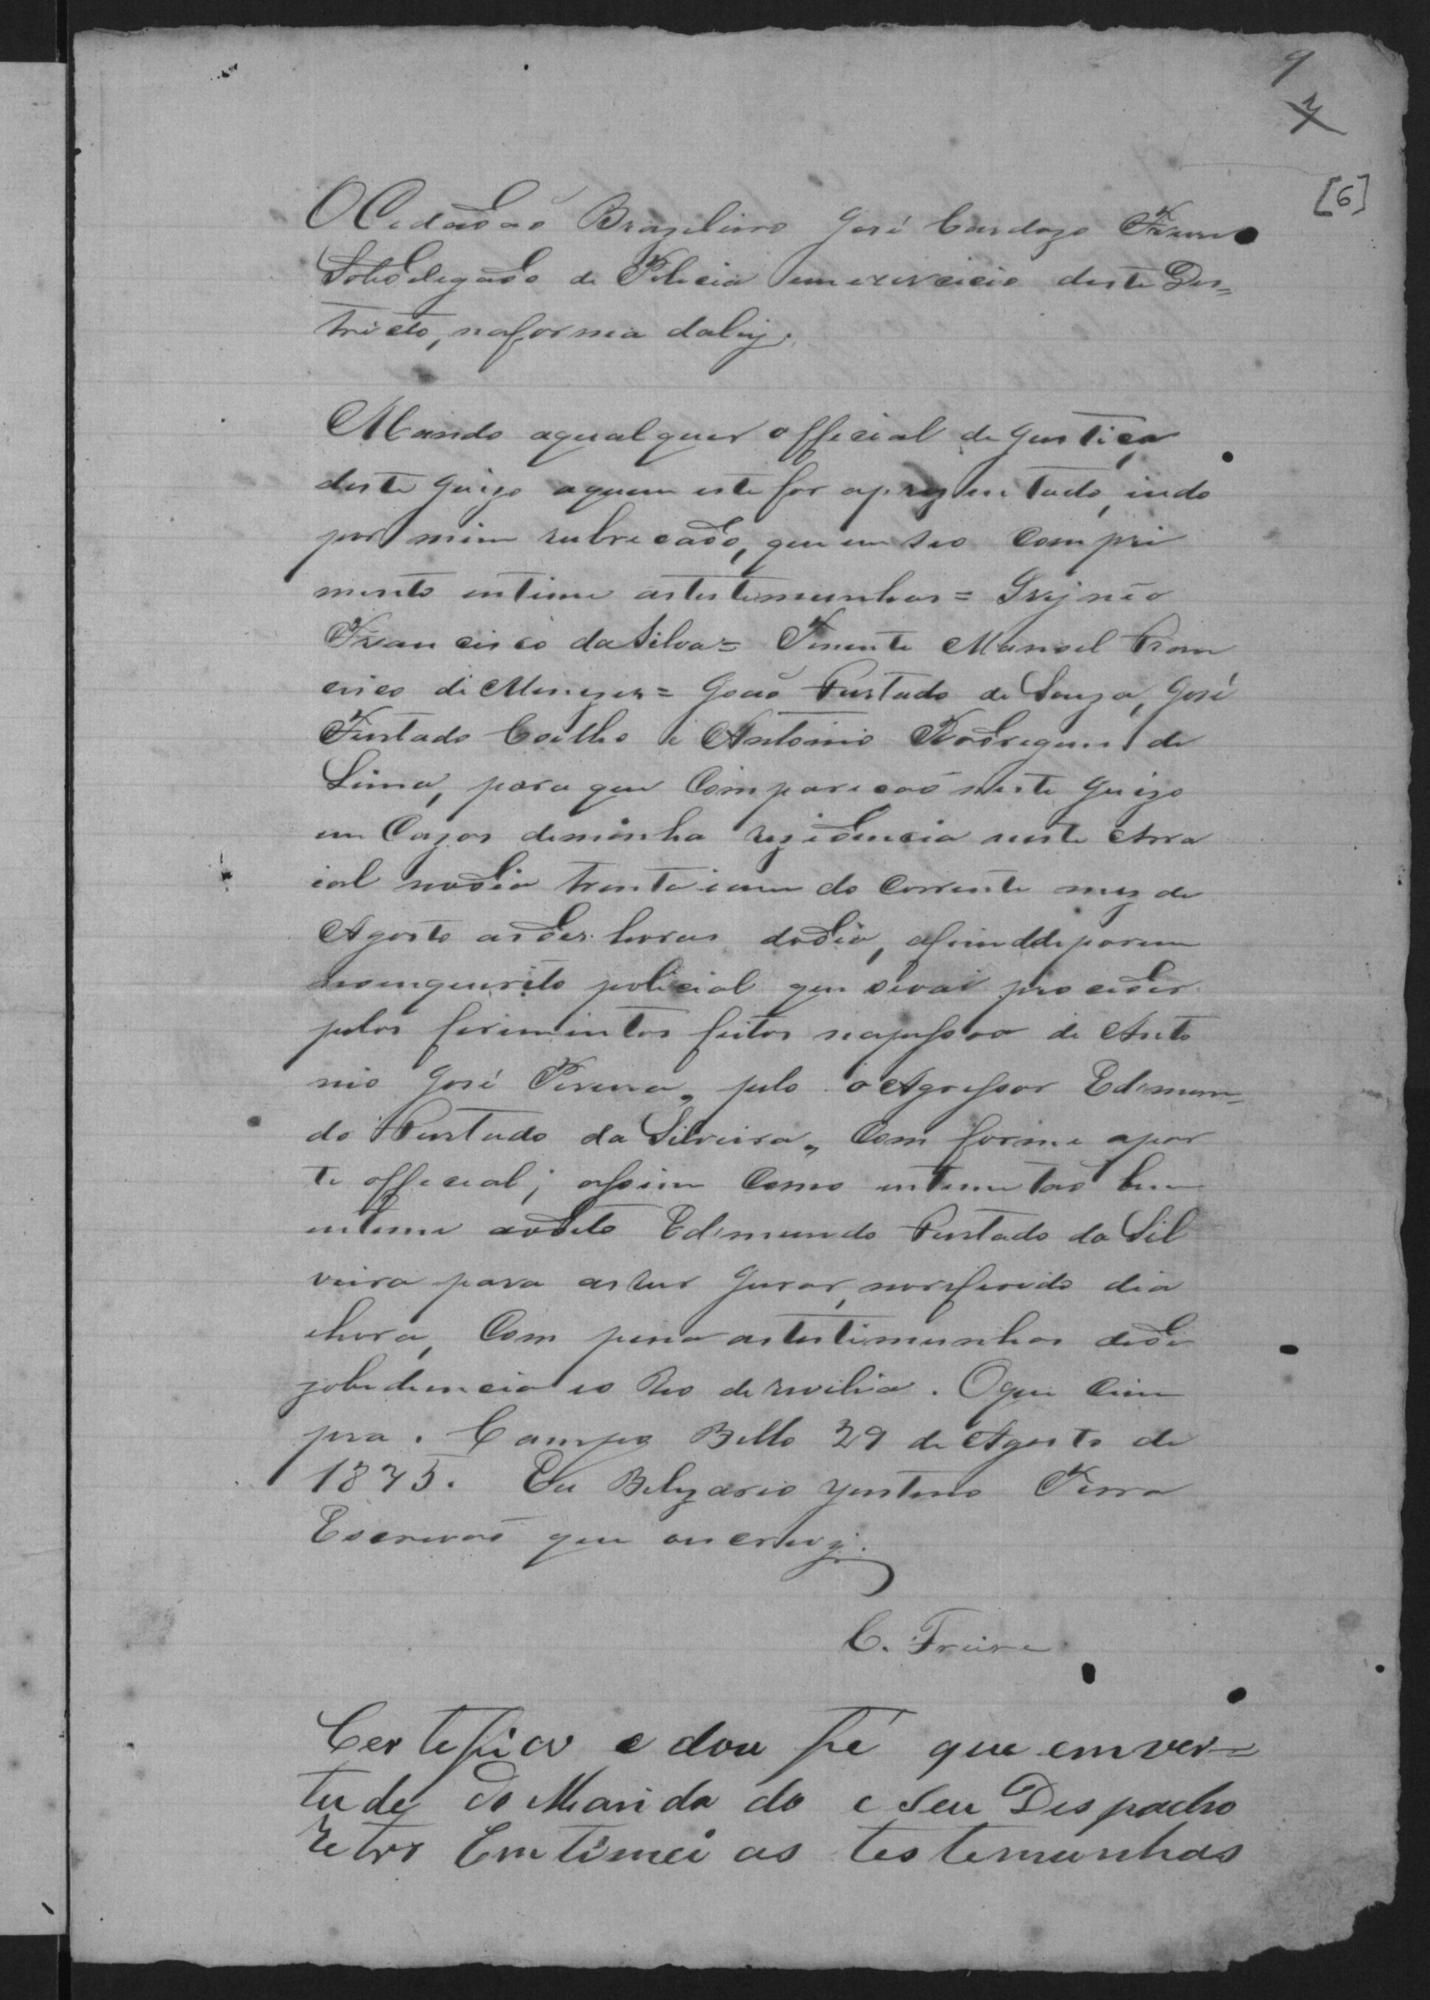 9
7
[6]
O Cidadaõ Brazileiro José Cardozo Freire
Sobdelegado de Policia em exercicio deste Des=
tricto, na forma da ley.
Mando aqualquer official de Justiça
deste Juizo aquem este for aprezentado, indo
por mim rubrecado, que em seo Compri
mento entime as testemunhas =
Francisco da Silva = Tenente Manoel Fran
cisco de Menezes = Joaõ Furtado de Souza, José
Furtado Coelho e Antonio Rodregues de
Lima, para que Compareçaõ neste Juizo
em Cazas de minha rezidencia neste Arra
ial no dia trinta ium do Corrente mez de
Agosto as des horas do dia, afim de deporem
no enquerito policial que se vai proceder
pelos ferimentos feitos na pessoa de Anto
nio José Pereira, pelo o Agressor Edimun=
do Furtado da Silveira, Com forme a par
te official; assim Como entime taõ bem
entime ao dito Edimundo Furtado da Sil
veira para as ver Jurar, no referido dia
ehora, Com pena as testimunhas de de
zobediencia eo Reo de revelia. O que Cum
pra. Campo Bello 29 de Agosto de
1875. Eu Belizario Justino Terra
Escrivaõ que o escrevy.
C. Freire
Certefico e dou fé que em ver=
tude do Manda do e Seu Despacho
retro Emtimei as testemunhas